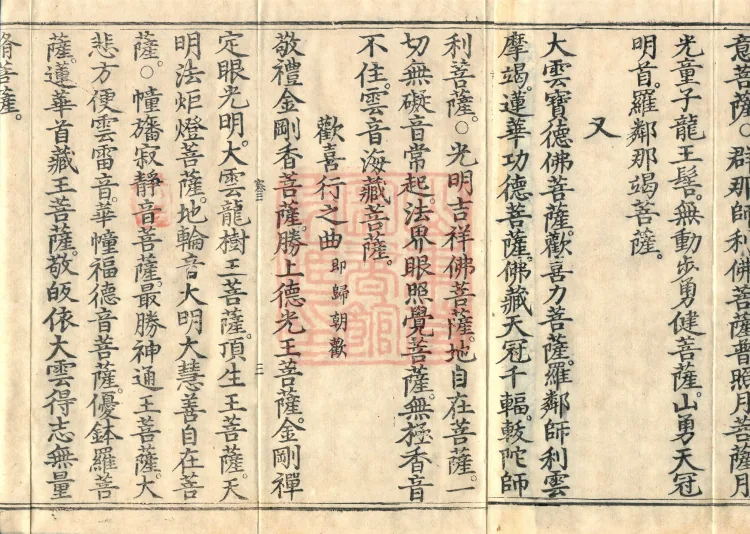 意菩薩。○群那師利佛菩薩。無照月菩薩。月
光童子龍王髻。無動步勇健菩薩。山勇天冠
明首。羅鄰那竭菩薩。
又
大雲寶德佛菩薩。歡喜力菩薩。羅鄰師利雲
摩竭。蓮華功德菩薩。佛藏天冠千輻。䩭陀師
利菩薩。○光明吉祥佛菩薩。地自在菩薩。一
切無礙音常起。法界眼照覺菩薩。無極香音
不住。雲音海藏菩薩。
歡喜行之曲 即歸朝歡
敬禮金剛香菩薩。勝上德光王菩薩。金剛禪
定眼光明。大雲龍樹王菩薩。頂生王菩薩。天
明法炬燈菩薩。地輪音大明大慧善自在菩
薩。○幢旛寂靜音菩薩。最勝神通王菩薩。大
悲方便雲雷音。華幢福德音菩薩。優鉢羅菩
薩。蓮華首藏王菩薩。敬皈依大雲得志無量
脩菩薩。